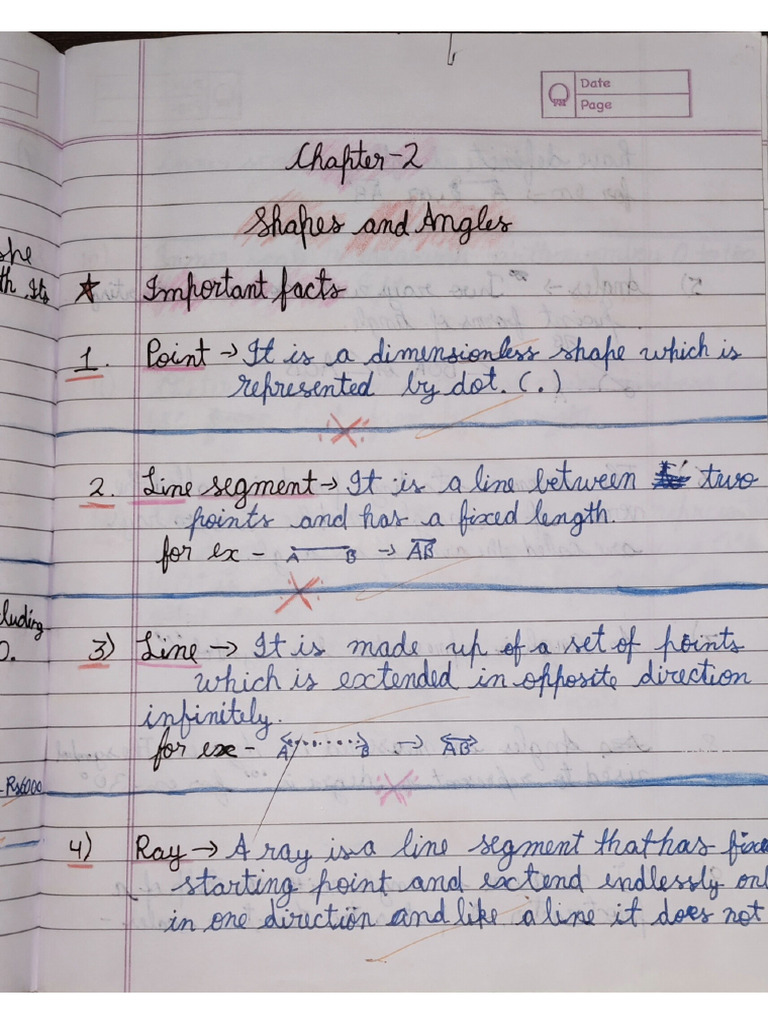 Date
Page
Chapter-2
Shapes and Angles
she
th Its
★ Important facts
1. Point → It is a dimensionless shape which is
represented by dot. (.)
2. Line segment → It is a line between two
points and has a fixed length.
for ex - A B → AB
cluding
0.
3) Line → It is made up of a set of points
which is extended in opposite direction
infinitely.
for ex - A B → AB
Rs6000
4) Ray → A ray is a line segment that has fixed
starting point and extend endlessly onl
in one direction and like a line it does not